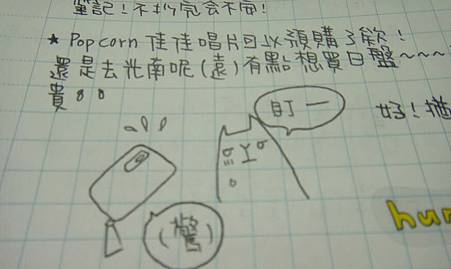 筆記!不抄完會不安!
★Popcorn佳佳唱片可以預購了欸!
還是去光南呢(遠)有點想買日盤~~~
貴
盯一
好!
(驚)
hun